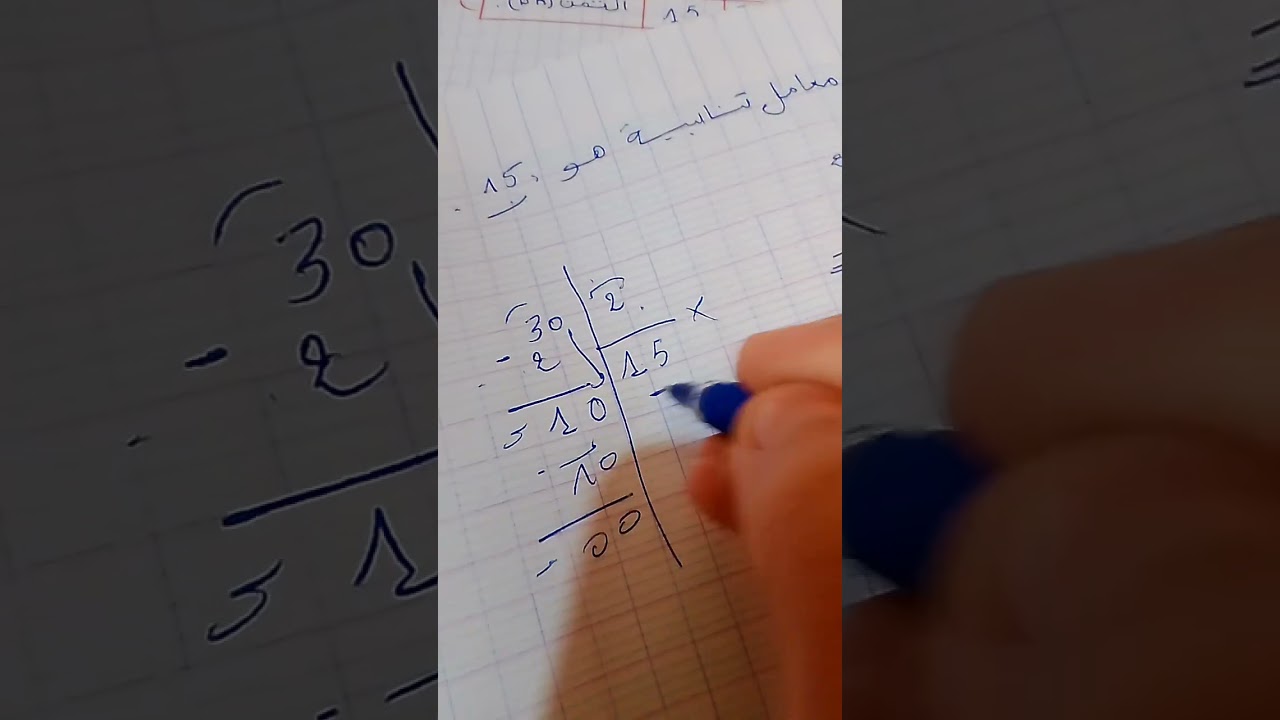 الثمن (DH)
15
معامل تناسبية هو 15.
30 2
- 2 15 ×
10
- 10
00